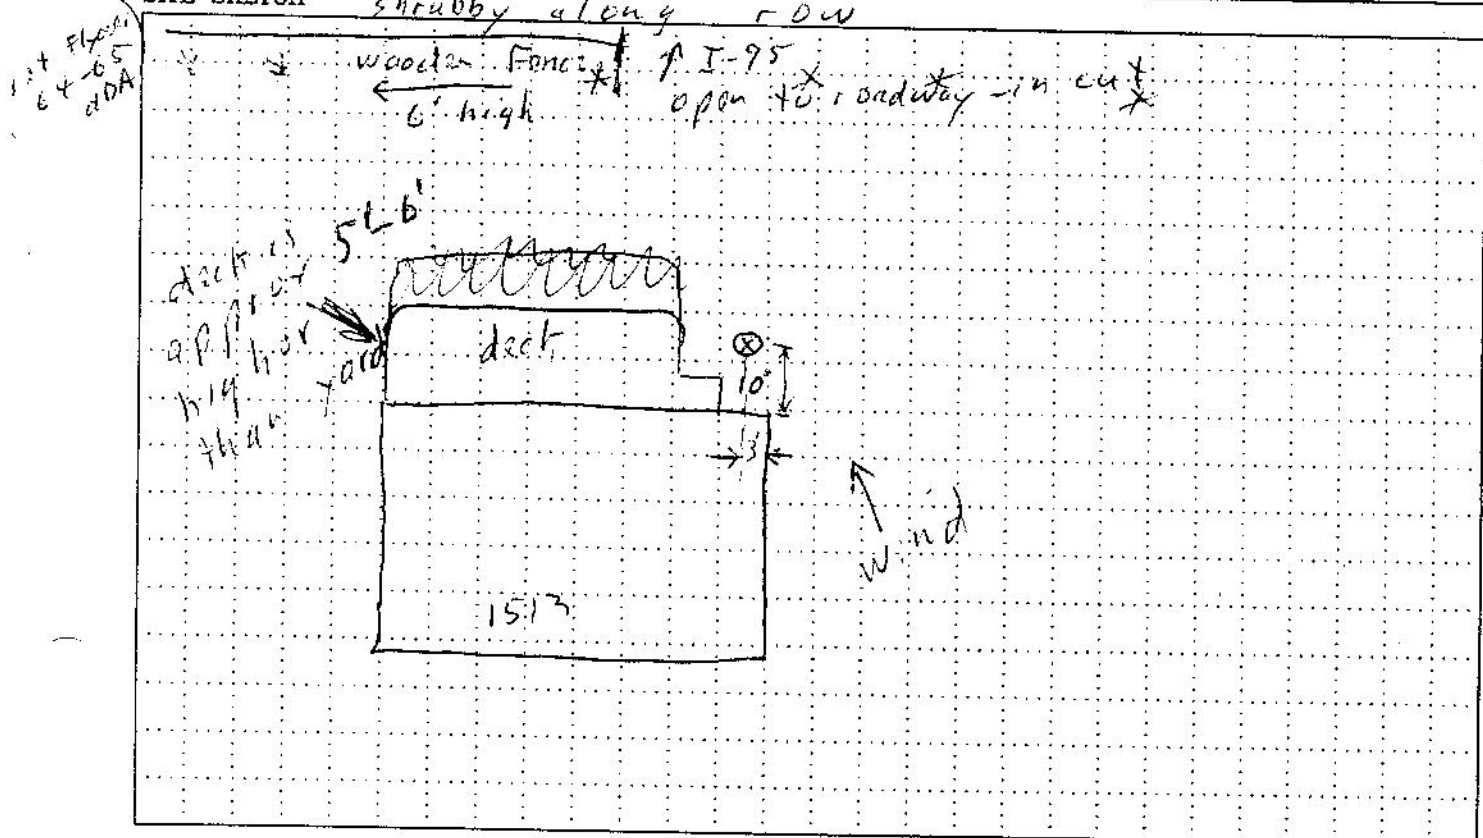 SITE SKETCH
shrubby along row
1st Floor
64-65
dBA
wooden Fence
6' high
↑ I-95
open to roadway - in cut
deck is
approx 5'-6'
higher
than yard
deck
10'
3'
wind
1513